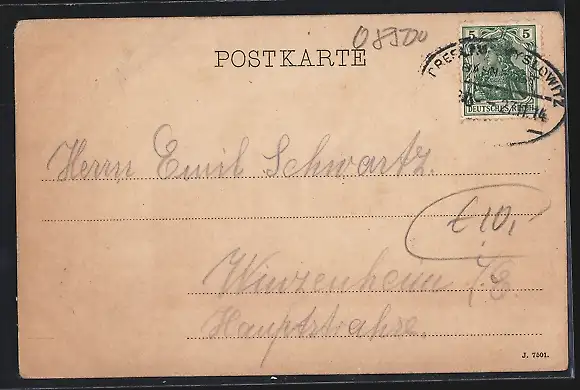 08500
POSTKARTE
5 5
DEUTSCHES REICH
BRESLAU SLOWITZ
14
Herrn Emil Schwartz.
£ 10,
Winzenheim i/E.
Hauptstraße.
J. 7501.